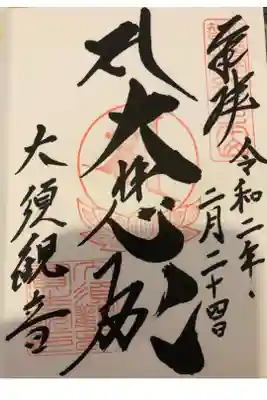 奉拝
令和二年二月二十四日
大悲殿
大須観音